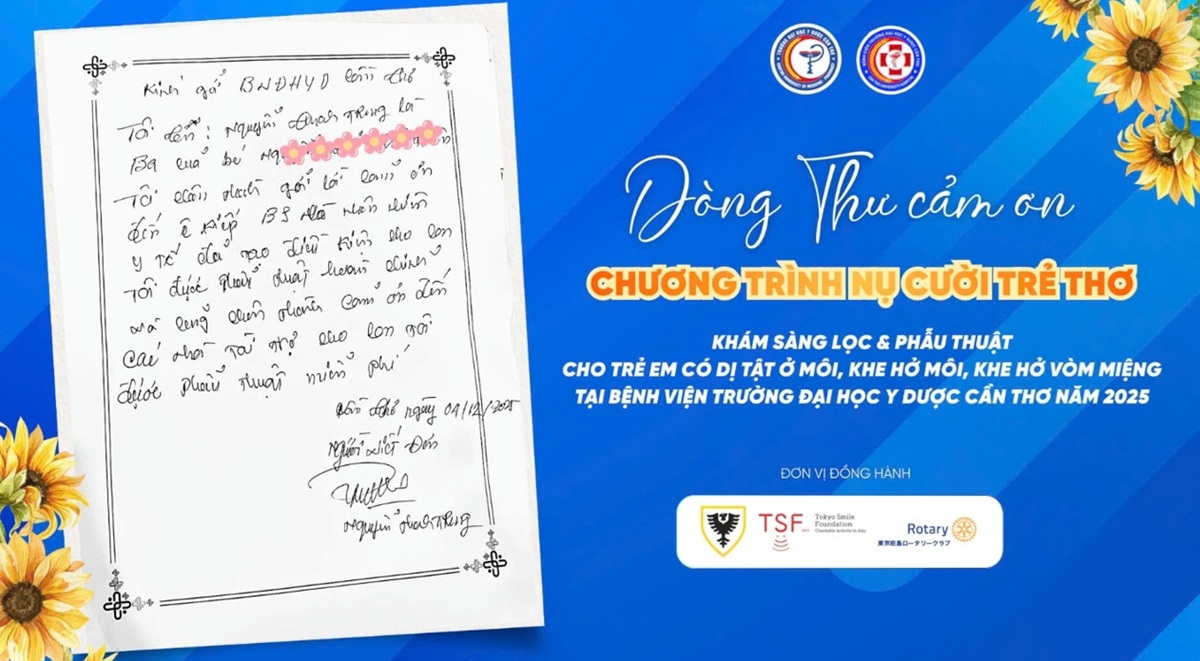 Kính gởi BVĐHYD Cần Thơ
Tôi tên: Nguyễn Thành Trung là
Ba của bé
Tôi chân thành gởi lời cảm ơn
đến ê kíp BS và nhân viên
y tế đã tạo điều kiện cho con
Tôi được phẫu thuật hoàn chỉnh
và cũng chân thành cảm ơn đến
các nhà Tài trợ cho con tôi
được phẫu thuật miễn phí
Cần Thơ ngày 04/12/2025
Người viết Đơn
Nguyễn Thành Trung
Dòng Thư cảm ơn
CHƯƠNG TRÌNH NỤ CƯỜI TRẺ THƠ
KHÁM SÀNG LỌC & PHẪU THUẬT
CHO TRẺ EM CÓ DỊ TẬT Ở MÔI, KHE HỞ MÔI, KHE HỞ VÒM MIỆNG
TẠI BỆNH VIỆN TRƯỜNG ĐẠI HỌC Y DƯỢC CẦN THƠ NĂM 2025
ĐƠN VỊ ĐỒNG HÀNH
TSF
Tokyo Smile
Foundation
Rotary
東京昭島ロータリークラブ